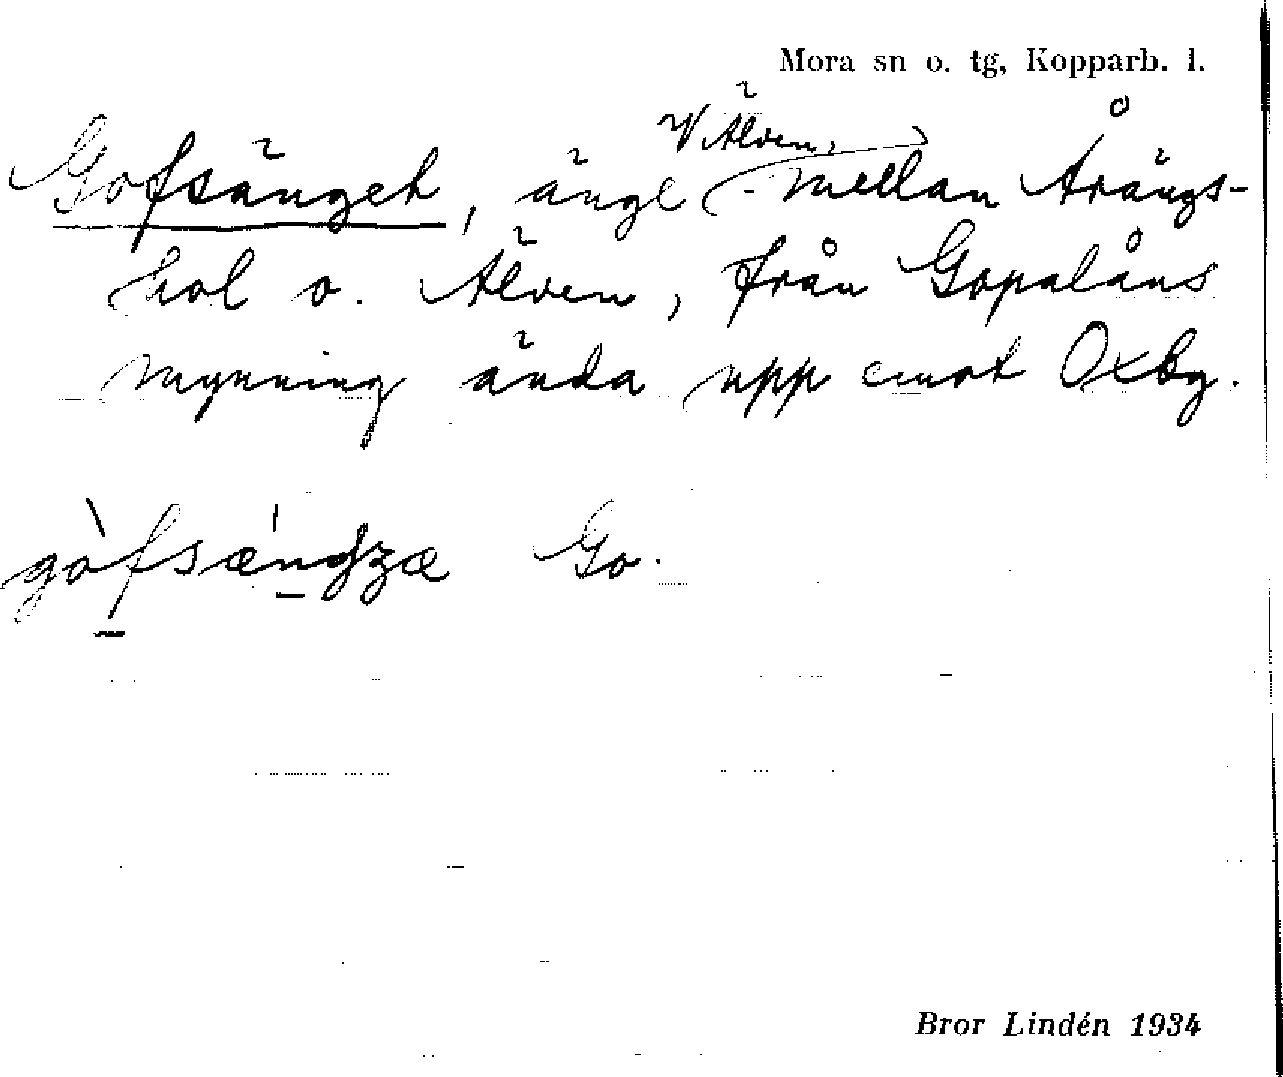 Mora sn o. tg, Kopparb. l.
V Älven,
Gofsänget, ängl (- mellan Årängs-
hol o. Älven, från Gopalåns
mynning ända upp emot Oxby.
gòfsæ̀ngʒæ Go.
Bror Lindén 1934